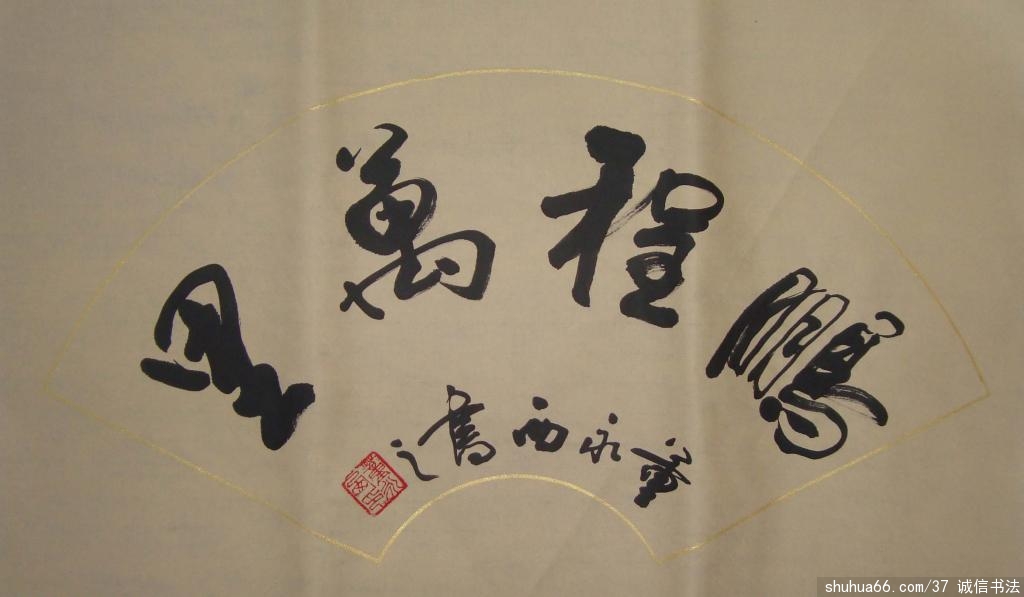 鵬程萬里
董永西書之
shuhua66.com/37 诚信书法